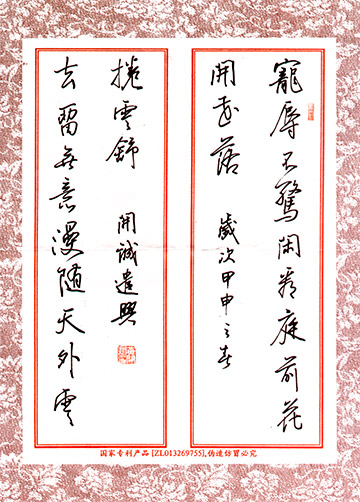 寵辱不驚閑看庭前花
開花落 歲次甲申之春
去留無意漫随天外雲
捲雲舒 開誠遣興
国家专利产品 [ZL013269755],伪造仿冒必究